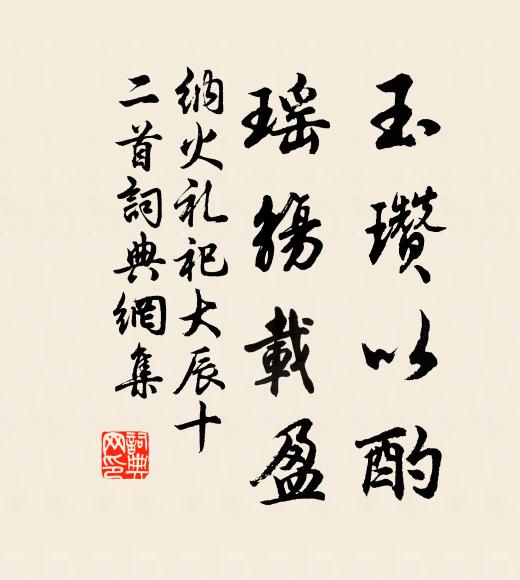 玉瓚以酌
瑤觴載盈
納火礼祀大辰十
二首詞典網集
詞典
网印